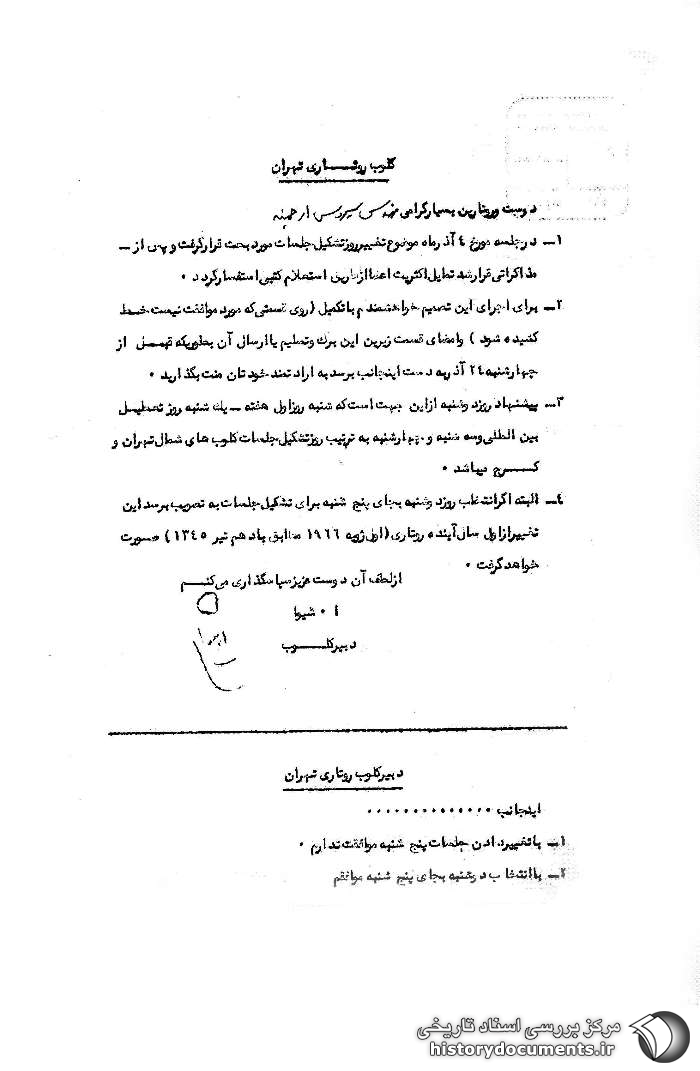 کلوب روتـــاری تهران
دوست و روتارین بسیار گرامی مهندس سیروس ارجمند
۱ــ در جلسه مورخ ٤ آذر ماه موضوع تغییر روز تشکیل جلسات مورد بحث قرار گرفت و پس از ــ
مذاکراتی قرار شد تمایل اکثریت اعضا از طریق استعلام کتبی استفسار گردد ۰
۲ــ برای اجرای این تصمیم خواهشمندم با تکمیل ( روی قسمتی که مورد موافقت نیست خــط
کشیده شود ) و امضای قسمت زیرین این برگ و تسلیم یا ارسال آن بطوریکه قبــل از
چهارشنبه ۲٤ آذر به دست اینجانب برسد به ارادتمند خودتان منت بگذارید ۰
۳ــ پیشنهاد روز دوشنبه از این جهت است که شنبه روز اول هفته ــ یک شنبه روز تعطیــل
بین المللی و سه شنبه و چهارشنبه به ترتیب روز تشکیل جلسات کلوب های شمال تهران و
کـــرج میباشد ۰
٤ــ البته اگر انتخاب روز دوشنبه بجای پنج شنبه برای تشکیل جلسات به تصویب برسد این
تغییر از اول سال آینده روتاری ( اول ژویه ۱۹٦٦ مطابق با دهم تیر ۱۳٤٥ ) صورت
خواهد گرفت ۰
از لطف آن دوست عزیز سپاسگذاری می کنــم
ا ۰ شیوا
دبیر کلـــوب
دبیر کلوب روتاری تهران
اینجانب ۰۰۰۰۰۰۰۰۰۰۰۰۰۰
۱ــ با تغییر دادن جلسات پنج شنبه موافقت ندارم ۰
۲ــ با انتخاب دوشنبه بجای پنج شنبه موافقم
مرکز بررسی اسناد تاریخی
historydocuments.ir